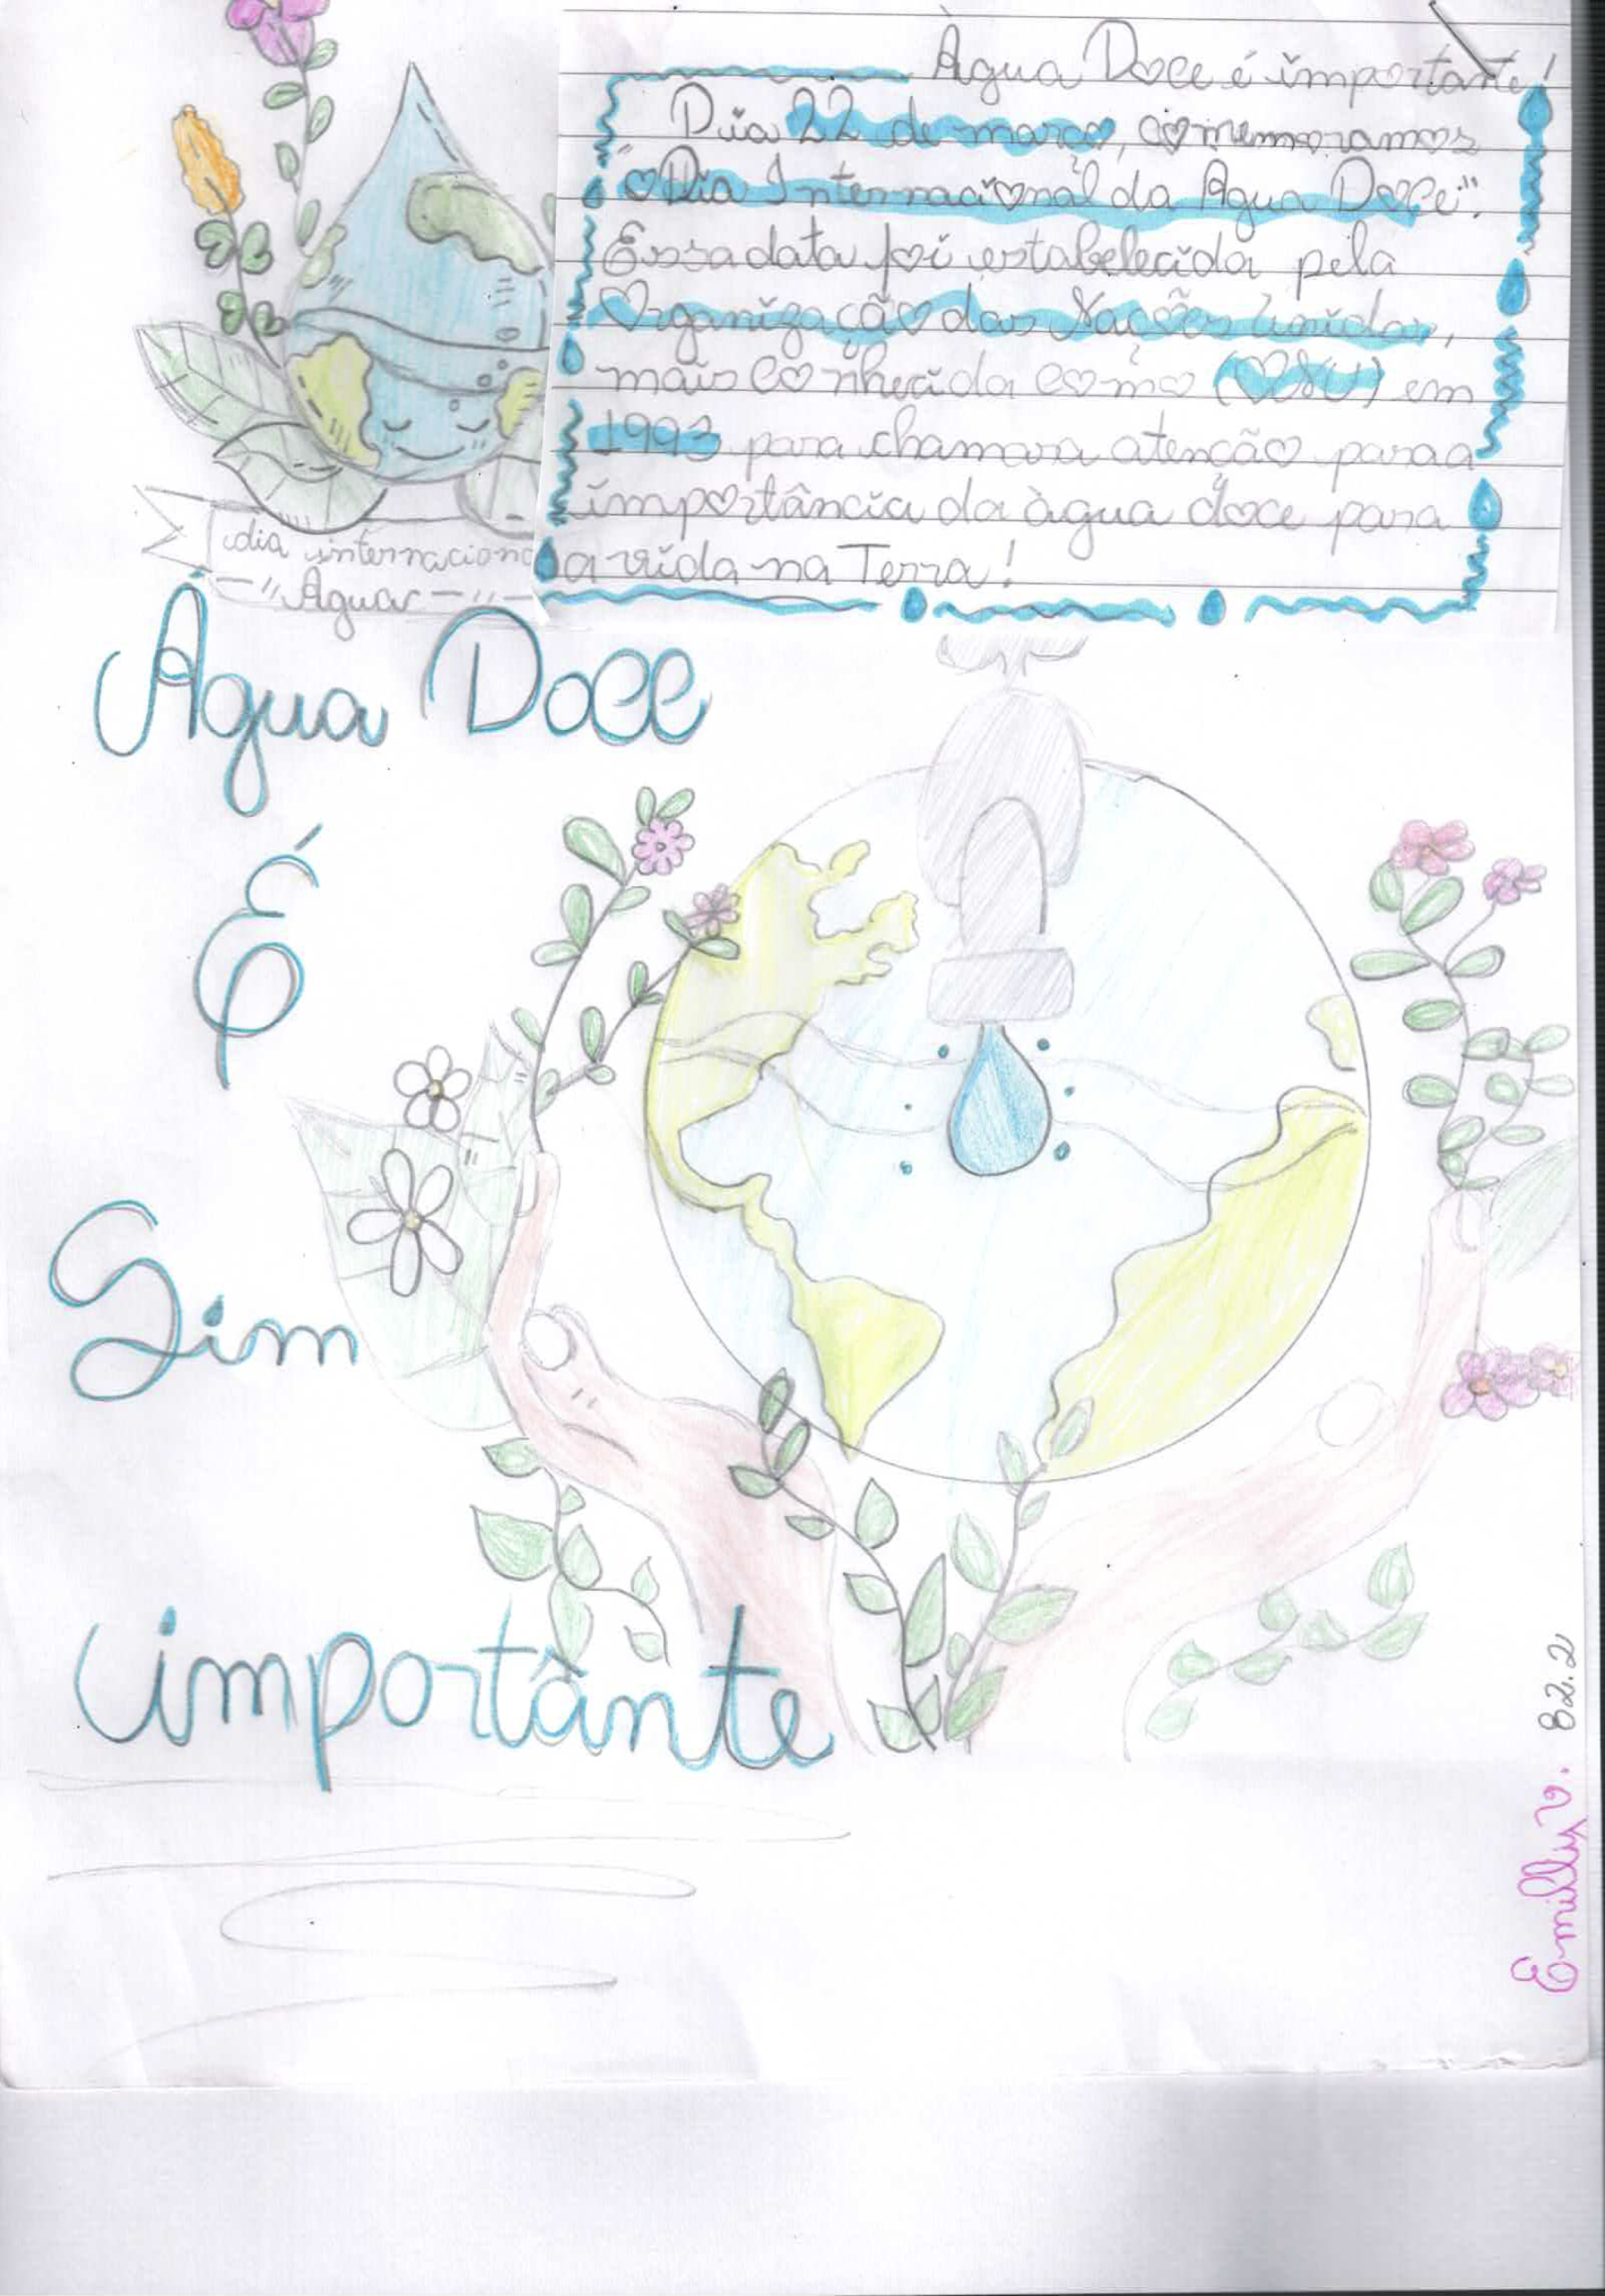 Àgua Doce é importante!
Dia 22 de março, comemoramos
"O Dia Internacional da Água Doce".
Essa data foi estabelecida pela
Organização das Nações Unidas,
mais conhecida como (ONU) em
1993 para chamara atenção para a
importância da àgua doce para
a vida na Terra!
dia internaciona
-"Água"-
Água Doce
É
Sim
importânte
Emilly V. 82.2